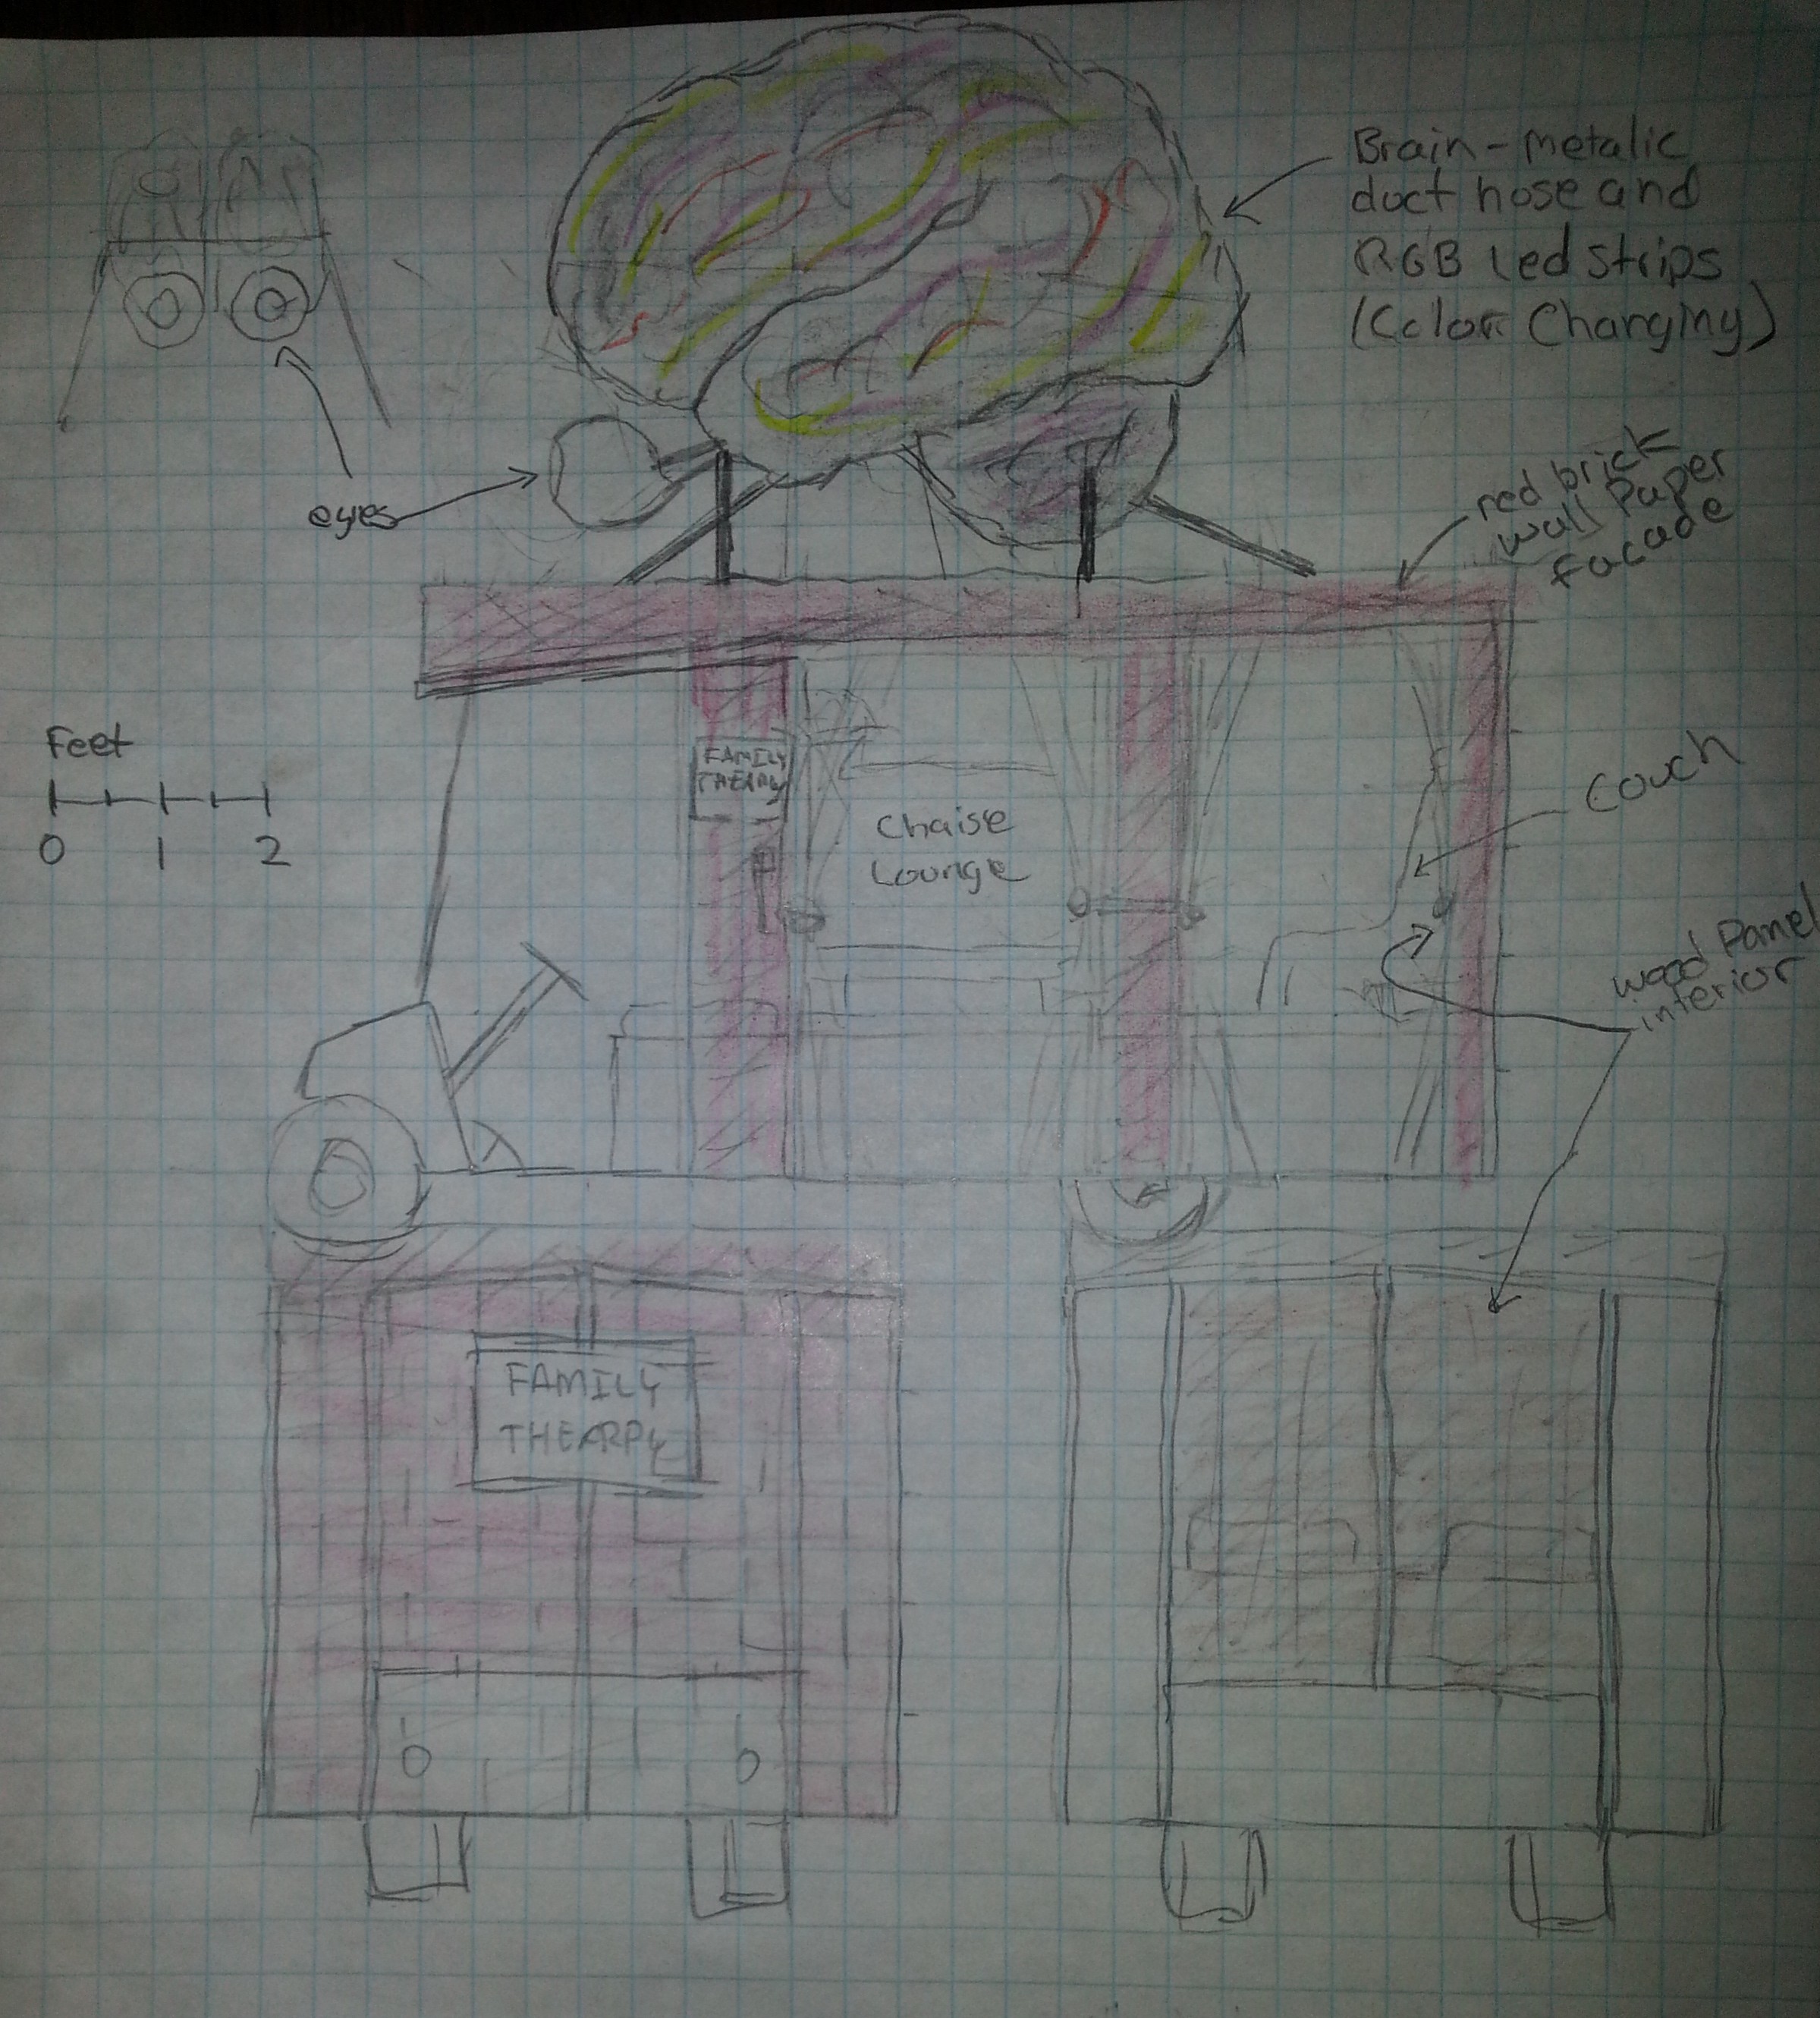 Brain - metalic
duct hose and
RGB Led Strips
(Color Changing)
eyes
red brick
wall Paper
facade
Feet
0 1 2
FAMILY
THEARPY
Chaise
Lounge
Couch
wood Panel
interior
FAMILY
THEARPY